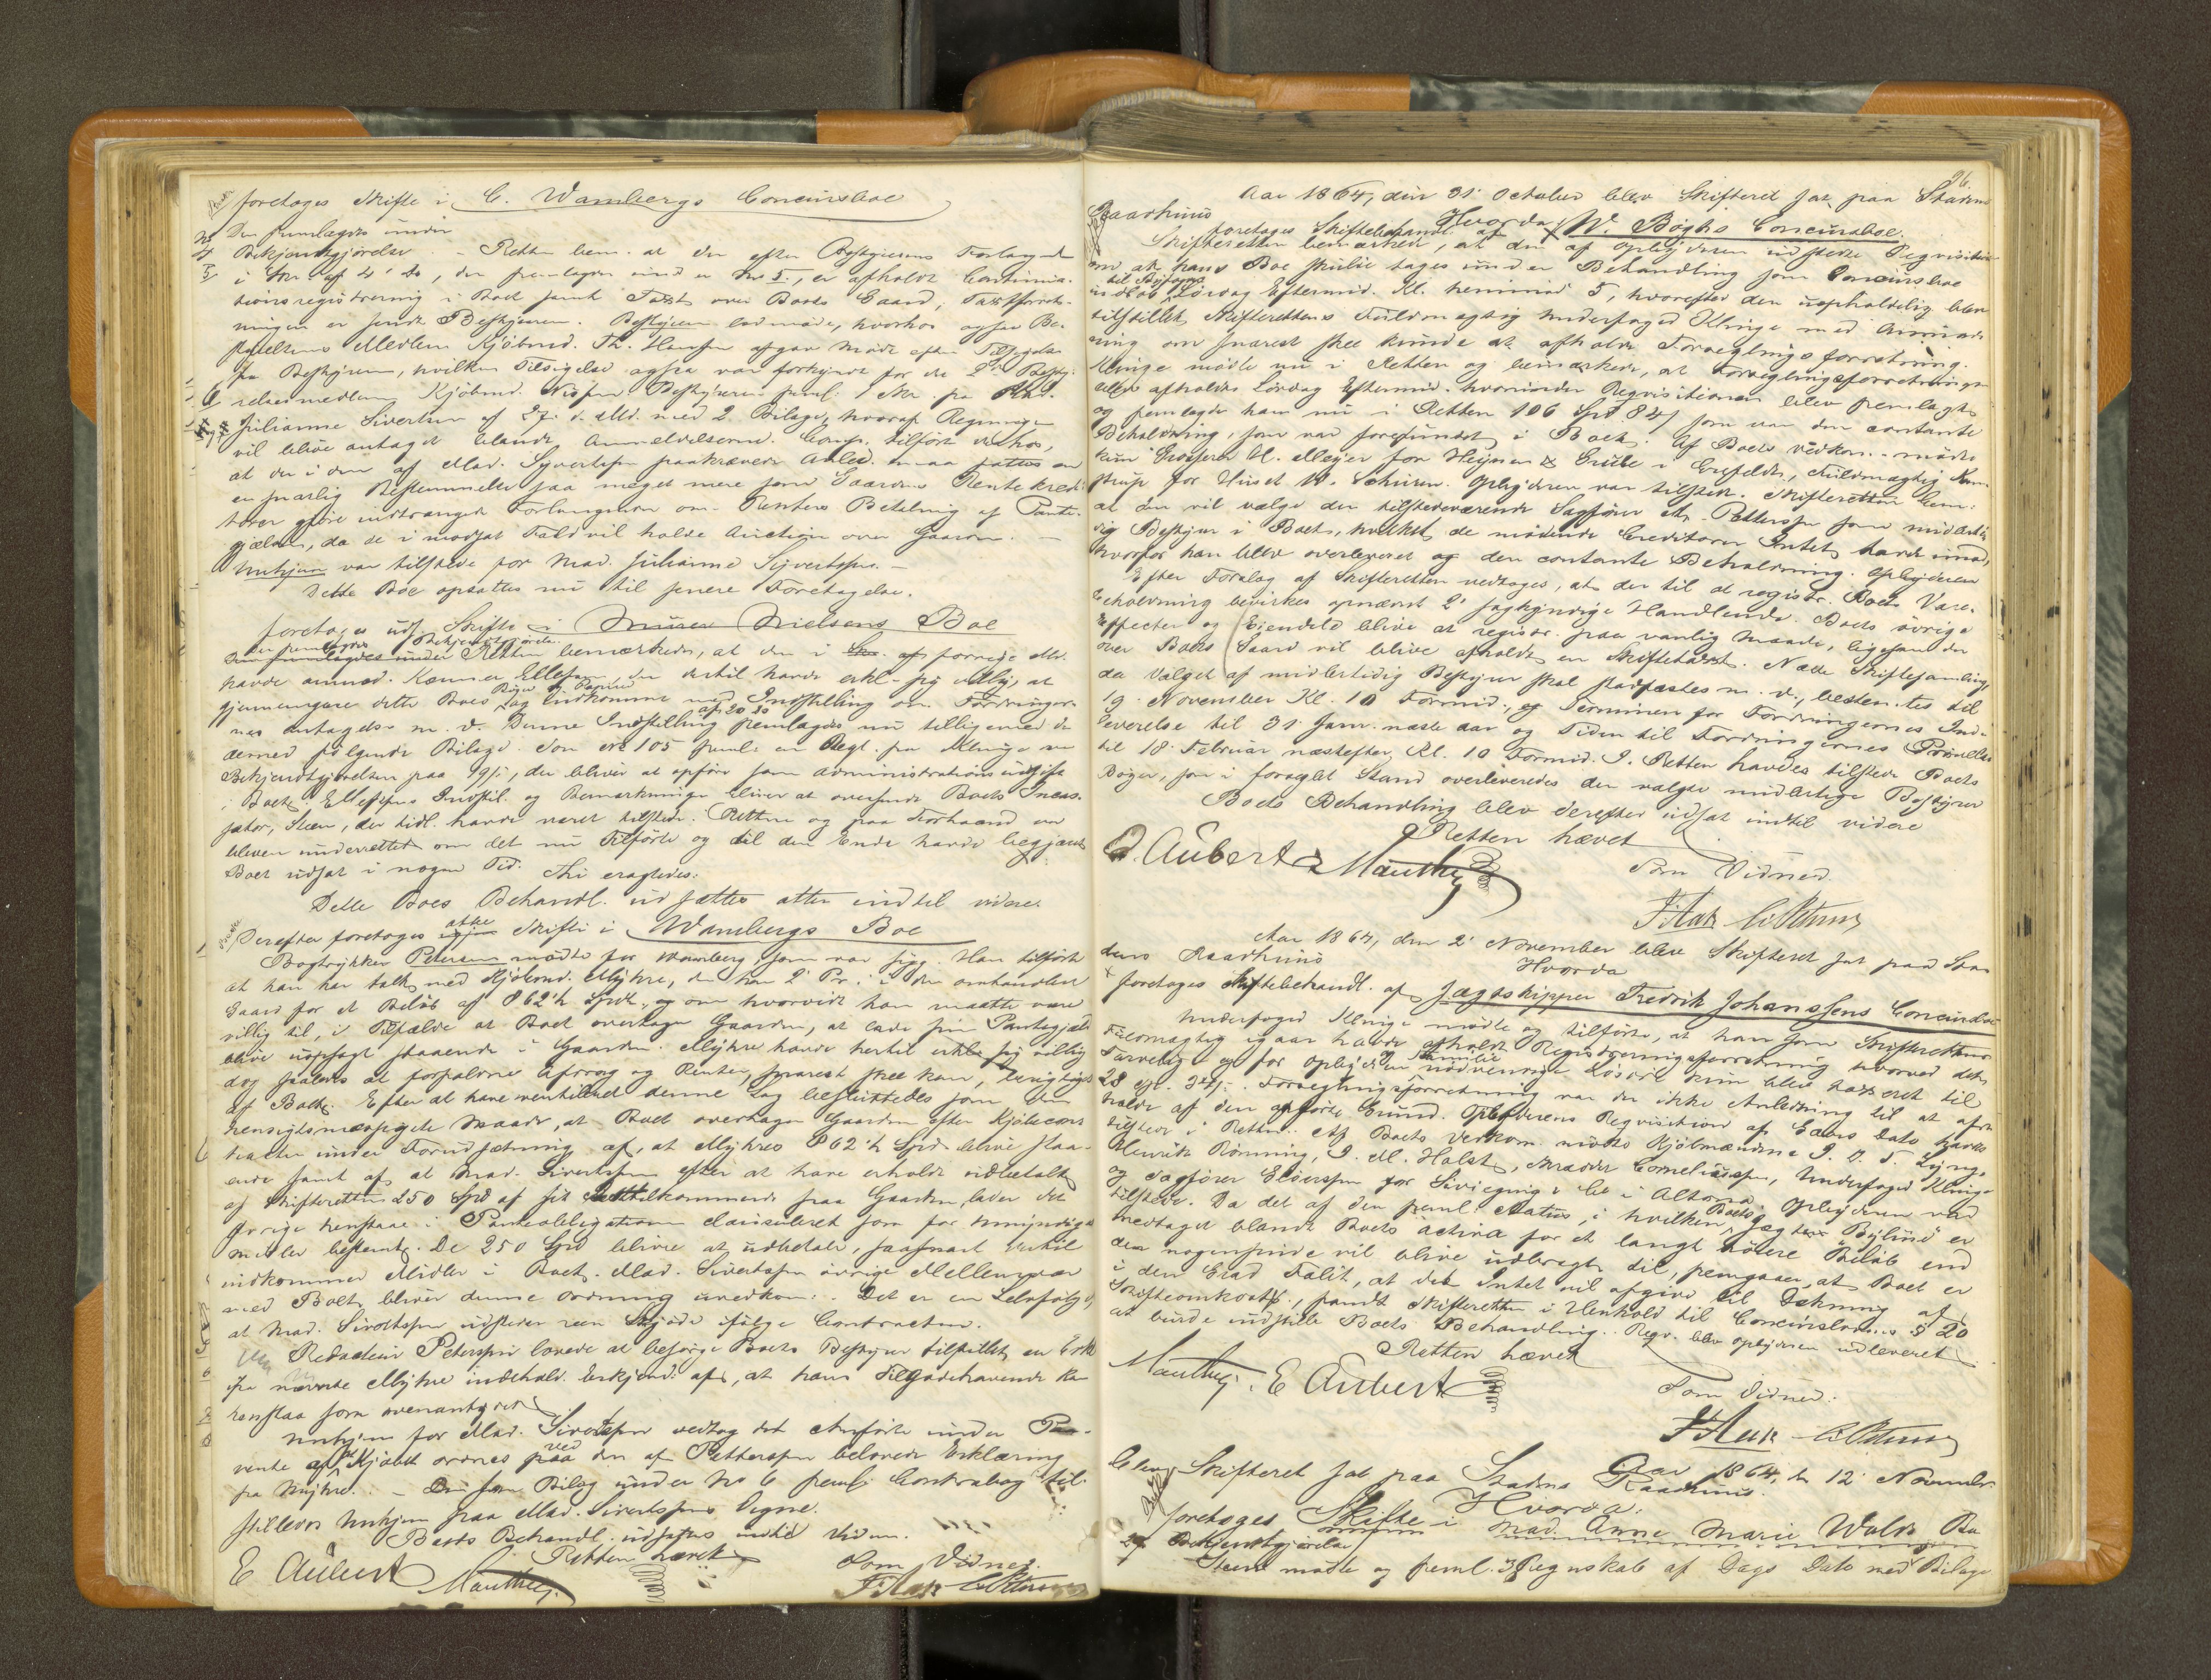 foretages Skifte i C. Wambergs Concursboe
Der fremlagdes under
Bekjendtgjørelse - Retten bem. at der efter Bestyrerens Forlangende
i Skr. af 4' ds, der fremlagdes under No 5, er afholdt Continua-
tionsregistrering i Boet samt Taxt over Boets Gaard; Taxtforret-
ningen er sendt Bestyreren. Bestyreren lod møde, hvorhos ogsaa Be-
styrelsens Medlem Kjøbmd. Th. Hansen afgav Møde efter Tilsigelse
fra Bestyreren, hvilken Tilsigelse ogsaa var forkyndt for det 2det Besty-
relsesmedlem Kjøbmd. Bestyreren freml. 1 Skr. fra
Julianne Sivertsen af 27. d. Md. med 2 Bilage, hvoraf Regningen
vil blive antaget blandt Anmeldelserne. tilførte derhos,
at der i den af Mad. Syvertsen paakrævede Anled. maa fattes en
en snarlig Bestemmelse saa meget mere som Gaardens Pantekredi-
torer gjøre indtrængende Forlangende om Rentens Betaling af Pante-
gjælden, da de i modsat Fald vil holde Auction over Gaarden. -
var tilstede for Mad. Julianne Syvertsen. -
Dette Boe opsattes nu til senere Foretagelse.
foretages uds. Skifte i Murer Nielsens Boe
Der fremlagdes Bekjendtgjørelse.
Retten bemærkede, at den i forrige Md.
havde anmod. Kæmner Ellefsen, der dertil havde erkl. sig villig, at
gjennemgaae dette Boes Bøger og Papirer og indkomme med Indstilling om Fordringer-
nes Antagelse m. v. Denne Indstilling af 20 ds fremlagdes nu tilligemed de
dermed følgende Bilage. Som No 105 freml. en Regn. fra Klinge
Bekjendtgjørelsen paa 19/, der bliver at opføre som Administrationsudgift
i Boet. Ellefsens Indstil. og Bemærkninger bliver at oversende Boets Incas-
sator, Steen, der tidl. havde været tilstede i Retten og paa Forhaand var
bleven underrettet om det nu Tilførte og til den Ende havde begjært
Boet udsat i nogen Tid. Thi eragtedes:
Dette Boes Behandl. udsættes atter indtil videre.
Derefter foretages atter Skifte i Wambergs Boe
Bogtrykker Petersen mødte for Wamberg, som var syg. Han tilførte
at han har talt med Kjøbmd. Myhre, der har 2' Pr. i den omhandlede
Gaard for et Beløb af 862 1/2 Spdl., og om hvorvidt han maatte være
villig til, i Tilfælde at Boet overtager Gaarden, at lade sin Pantegjæld
blive uopsagt staaende i Gaarden. Myhre havde hertil erkl. sig villig
dog saaledes at forfaldne Afdrag og Renter, snarest skee kan, berigtiges
af Boet. Efter at have ventileret denne Sag besluttedes som den
hensigtsmæssigste Maade, at Boet overtager Gaarden efter Kjøbecon-
tracten under Forudsætning af, at Myhres 862 1/2 Spd. blive staa-
ende samt af at Mad. Sivertsen efter at have erholdt udbetalt
af Skifteretten 250 Spd af sit Resttilkommende paa Gaarden, lader det
øvrige henstaae i Panteobligation clausuleret som for umyndige
Midler bestemt. De 250 Spd blive at udbetale, saasnart dertil
indkommer Midler i Boet. Mad. Sivertsen øvrige Mellemvær
med Boet, bliver denne Ordning uvedkom. Det er en Selvfølge,
at Mad. Sivertsen udsteder reen Skjøde ifølge Contracten.
Redacteur Peterssen lovede at besørge Boets Bestyrer tilstillet en Erkl
fra nævnte Myhre indehold. Erkjend. af, at hans Tilgodehavende kan
henstaa som ovenanført
for Mad. Sivertsen vedtog det Anførte under
at Kjøbet ordnes ved den af Petterssen belovede Erklæring
fra Myhre. - Som Bilag under No 6 freml. Contrabog til-
stilledes paa Mad. Sivertsens Vegne.
Boets Behandl. udsattes indtil videre.
Retten hævet
E Aubert Mauthey.
Som Vidner.
96.
Aar 1864, den 31' October blev Skifteret sat paa Stadens
Raadhuus
Hvorda
foretages Skiftebehandl. af W. Bøghs Concursboe.
Skifteretten bemærkede, at den af Opbyderen udstedte Requisition
om at hans Boe skulde tages under Behandling som Concursboe
til Byfogden Lørdag Eftermid. Kl. henimod 5, hvorefter den uopholdelig blev
tilstillet Skifterettens Fuldmægtig Underfoged Klinge med Anmod-
ning om snarest skee kunde at afholde Forseglingsforretning.
Klinge mødte nu i Retten og bemærkede, at Forseglingsforretningen
blev afholdt Lørdag Eftermid. hvorunder Requisitionen blev fremlagt
og fremlagde han nu i Retten 106 Spd 84/ som var den contante
Beholdning, som var forefundet i Boet. Af Boets Vedkom. mødte
kun Grosserer A. Meyer for Heynen & Grube i Crefeldt, Fuldmægtig
for Huset W. Schüren. Opbyderen var tilstede. Skifteretten bem.
at den vil vælge den tilstedeværende Sagfører Petterssen som midlerti-
dig Bestyrer i Boet, hvilket de mødende Creditorer Intet havde imod,
hvorfor han blev overleveret og den contante Beholdning. Opbyderen
Efter Forslag af Skifteretten vedtoges, at der til at registr. Boets Vare-
beholdning bevirkes opnævnt 2' sagkyndige Handlende. Boets øvrige
Effecter og Eiendele blive at registr. paa vanlig Maade, ligesom der
over Boets Gaard vil blive afholdt en Skiftetaxt. Næste Skiftesamling,
da Valget af midlertidig Bestyrer skal stadfæstes m. v., bestemtes til
19' November Kl. 10 Formid., og Terminen for Fordringernes Ind-
leverelse til 31' Janr. næste Aar og Tiden til Fordringernes Prøvelse
til 18' Februar næstefter, Kl. 10 Formid. I Retten havdes tilstede Boets
Bøger, som i forseglet Stand overleveredes den valgte midlertige Bestyrer
Boets Behandling blev derefter udsat indtil videre
Retten hævet
E. Aubert Mauthey
Som Vidner.
Aar 1864, den 2' November blev Skifteret sat paa Sta-
dens Raadhuus
Hvorda
foretages Skiftebehandl. af Jægtskipper Fredrik Johanssens Concursboe
Underfoged Klinge mødte og tilførte, at han som Skifterettens
Fuldmægtig igaar havde afholdt Registreringsforretning hvorved det
Tarvelige og for Opbyderens Familie nødvendige Løsøre kun blev taxeret til
28 Spd. 34/. Forseglingsforretning var der ikke Anledning til at afh-
holde af den anførte Grund. Opbyderens Requisition af Gaars Dato havdes
tilstede i Retten. Af Boets Vedkom. mødte Kjøbmændene J. L. F. Lynge
Henrik Rønning, J. M. Holst, Skrædder Corneliussen, Underfoged Klinge
og Sagfører Ellerssen for & Co i Altona. Opbyderen var
tilstede. Da det af den freml. Status, i hvilken Boets Jægt "Bylund" er
medtaget blandt Boets Activa for et langt høiere Beløb end
den nogensinde vil blive udbragt til, fremgaaer, at Boet er
i den Grad Falit, at det Intet vil afgive til Dækning af
Skifteomkostn., fandt Skifteretten i Henhold til Concurslovens § 20
at burde indstille Boets Behandling. Reqv. blev Opbyderen udleveret
Retten hævet
Mauthey. E Aubert
Som Vidner:
Aar 1864, d. 12' November
blev Skifteret sat paa Stadens Raadhuus.
Hvorda.
foretages Skifte i Mad. Anne Marie Wolds Bo
Bekjendtgjørelse
Steen mødte og freml. Regnskab af Dags Dato med Bilage